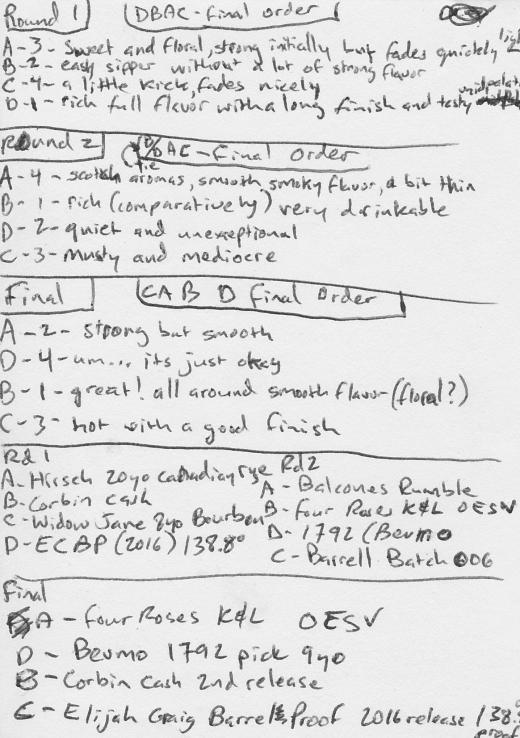 Round 1 DBAC-final order
A-3- Sweet and floral, strong initially but fades quickly
B-2- easy sipper without a lot of strong flavor
C-4- a little kick, fades nicely
D-1- rich full flavor with a long finish and tasty midpalate
Round 2 B/DAC-Final Order
tie
A-4- scotch aromas, smooth, smoky flavor, a bit thin
B-1- rich (comparatively) very drinkable
D-2- quiet and unexceptional
C-3- Musty and mediocre
Final CABD final Order
A-2- strong but smooth
D-4-um... its just okay
B-1-great! all around smooth flavor (floral?)
C-3- hot with a good finish
Rd 1
A-Hirsch 20yo canadian rye
B-Corbin cash
C-Widow Jane 8yo Bourbon
D-ECBP (2016) 138.8°
Rd2
A-Balcones Rumble
B-four Roses K&L OESV
D-1792 (Bevmo
C-Barrell Batch 006
Final
A-four Roses K&L OESV
D-Bevmo 1792 pick 9yo
B-Corbin cash 2nd release
C-Elijah Craig Barrel Proof 2016 release 138.8
proof